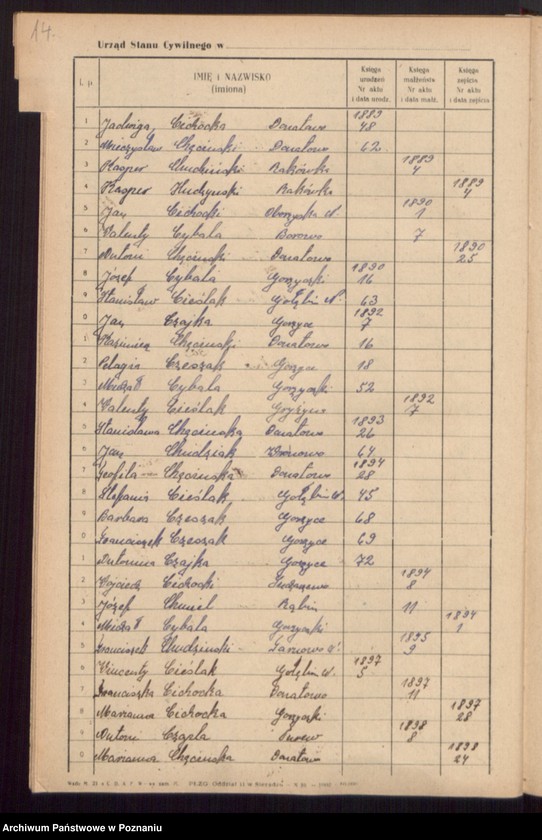 14.
Urząd Stanu Cywilnego w
L. p. IMIĘ i NAZWISKO (imiona) Księga urodzeń Nr aktu i data urodz. Księga małżeństw Nr aktu i data małż. Księga zejścia Nr aktu i data zejścia
1 Jadwiga Cichocka Donatowo 1889 48
2 Mieczysław Chęciński Donatowo 62
3 Kasper Chudziński Rakówka 1889 4
4 Kasper Rakówka 1889 4
5 Jan Cichocki 1890 1
6 Walenty Cybala Borowo 7
7 Antoni Chęciński Donatowo 1890 25
8 Józef Cybala Gorzyczki 1890 16
9 Stanisław Cieślak Gołębin N. 63
0 Jan Czajka Gorzyce 1892 7
1 Kazimierz Chęciński Donatowo 16
2 Pelagia Czeszak Gorzyce 18
3 Michał Cybala Gorzyczki 52
4 Walenty Cieślak 1892 7
5 Stanisława Chęcińska Donatowo 1893 26
6 Jan Chudziak 64
7 Teofila Chęcińska Donatowo 1894 28
8 Stefania Cieślak Gołębin N. 45
9 Barbara Czeszak Gorzyce 68
0 Franciszek Czeszak Gorzyce 69
1 Antonina Czajka Gorzyce 72
2 Wojciech Cichocki 1894 8
3 Józef Chmiel Rąbiń 11
4 Michał Cybala Gorzyczki 1894 1
5 Franciszek Chudziński 1895 9
6 Wincenty Cieślak Gołębin N. 1897 5
7 Franciszka Cichocka Donatowo 1897 11
8 Marianna Cichocka Gorzyczki 1897 28
9 Antoni Czapla 1898 8
0 Marianna Chęcińska Donatowo 1898 24
Archiwum Państwowe w Poznaniu